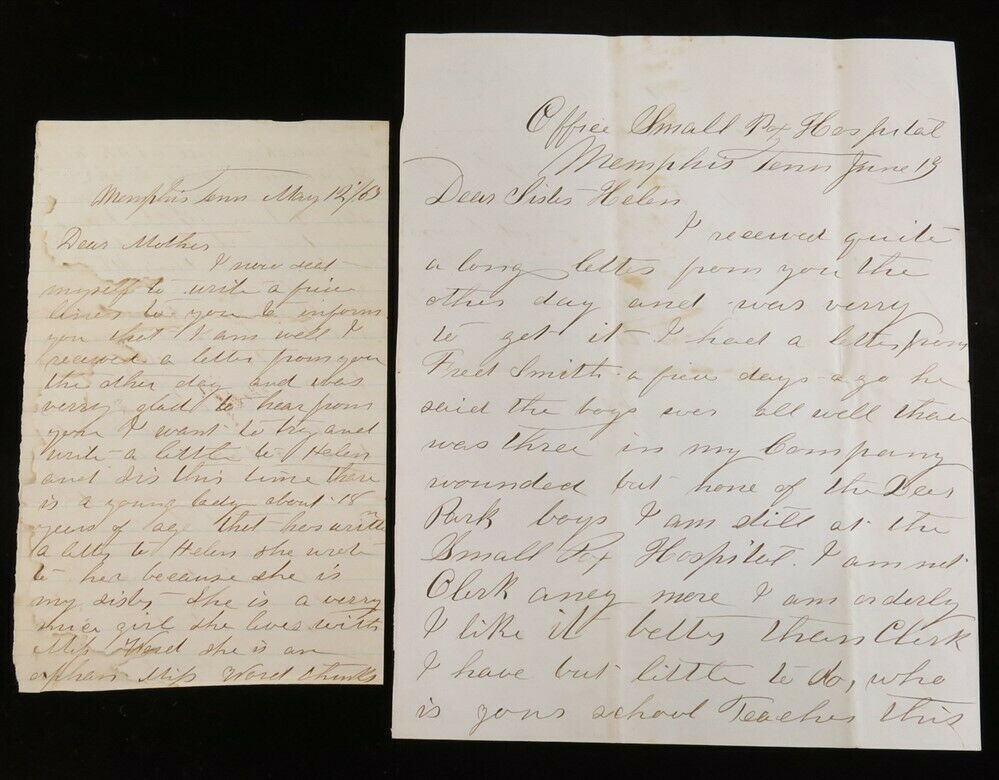 Memphis Tenn May 12/63
Dear Mother
I now seat
myself to write a fiew
lines to you to inform
you that I am well I
received a letter from you
the other day and was
verry glad to hear from
you I want to try and
write a little to Helen
and Dis this time there
is a young lady about 18
years of age that has written
a letter to Helen she wrote
to her because she is
my sister she is a verry
nice girl she lives with
Miss Word she is an
orphan Miss Word thinks
Office Small Pox Hospital
Memphis Tenn June 13
Dear Sister Helen
I received quite
a long letter from you the
other day and was verry
to get it I had a letter from
Fred Smith a fiew days ago he
said the boys wer all well thare
was three in my Company
wounded but none of the Deer
Park boys I am still at the
Small Pox Hospital. I am not
Clerk aney more I am orderly
I like it better than Clerk
I have but little to do, who
is your school Teacher this